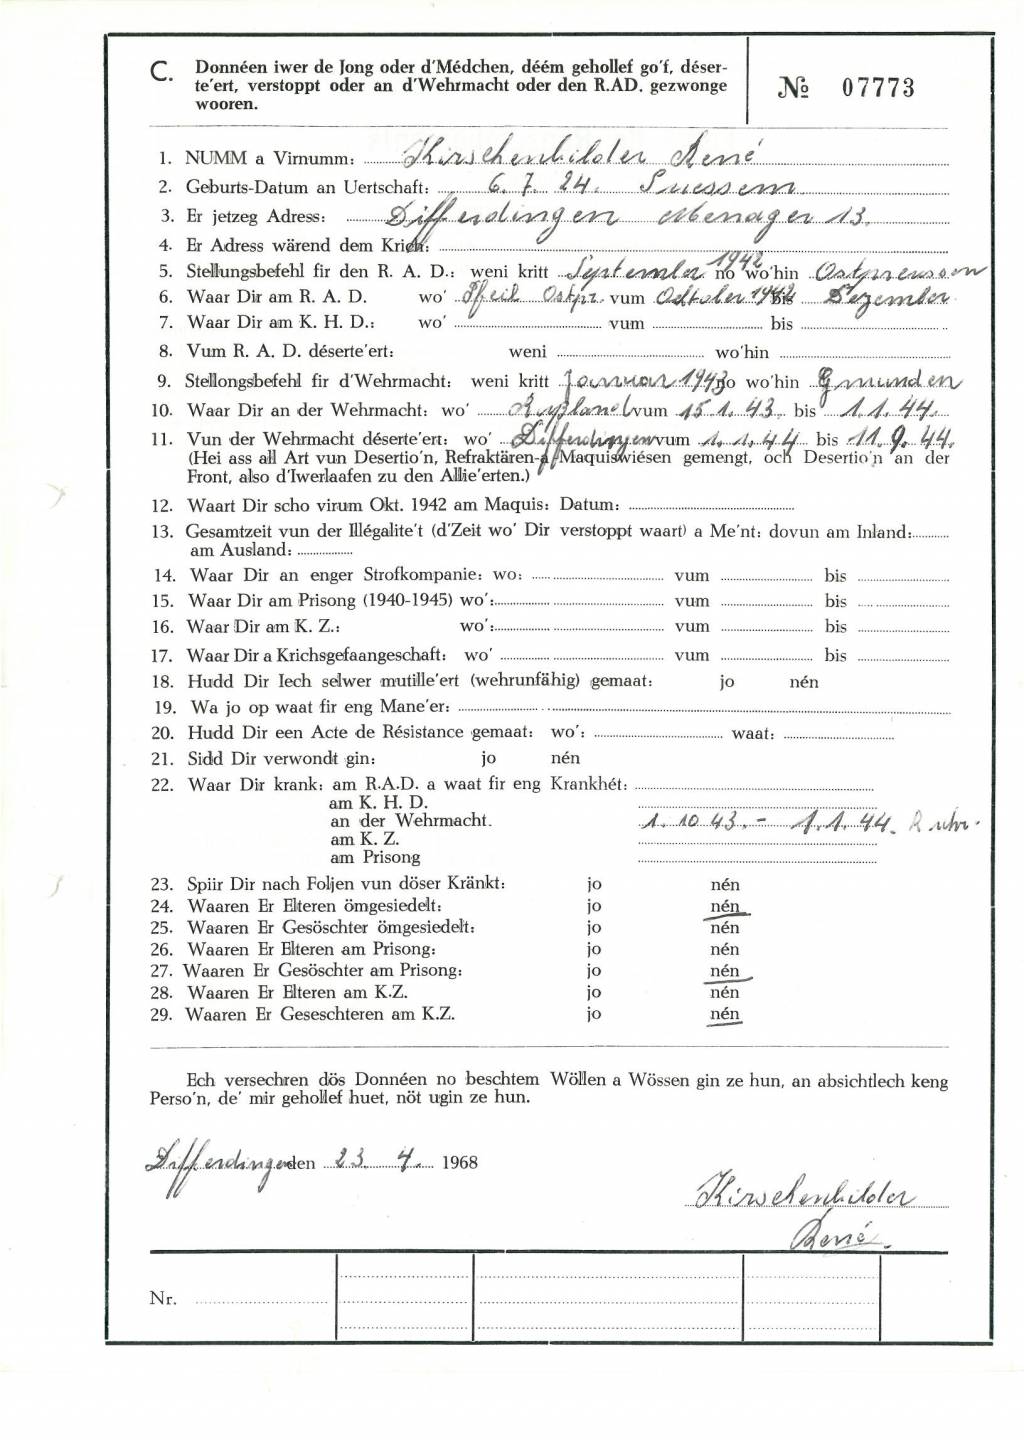 C. Donnéen iwer de Jong oder d'Médchen, déém gehollef go'f, déser-
te'ert, verstoppt oder an d'Wehrmacht oder den R.AD. gezwonge
wooren.
№ 07773
1. NUMM a Virnumm: Kirschenbilder René
2. Geburts-Datum an Uertschaft: 6. 7. 24. Suessem
3. Er jetzeg Adress: Differdingen Menager 13.
4. Er Adress wärend dem Krich:
5. Stellungsbefehl fir den R. A. D.: weni kritt September 1942 no wo'hin Ostpreussen
6. Waar Dir am R. A. D. wo' Pfeil Ostpr. vum Oktober 1942 bis Dezember
7. Waar Dir am K. H. D.: wo' vum bis
8. Vum R. A. D. déserte'ert: weni wo'hin
9. Stellongsbefehl fir d'Wehrmacht: weni kritt Januar 1943 no wo'hin Gmunden
10. Waar Dir an der Wehrmacht: wo' Rußland vum 15.1.43. bis 1.1.44.
11. Vun der Wehrmacht déserte'ert: wo' Differdingen vum 1.1.44 bis 11.9.44.
(Hei ass all Art vun Desertio'n, Refraktären-a Maquiswiésen gemengt, och Desertio'n an der
Front, also d'Iwerlaafen zu den Allie'erten.)
12. Waart Dir scho virum Okt. 1942 am Maquis: Datum:
13. Gesamtzeit vun der Illégalite't (d'Zeit wo' Dir verstoppt waart) a Me'nt: dovun am Inland:
am Ausland:
14. Waar Dir an enger Strofkompanie: wo: vum bis
15. Waar Dir am Prisong (1940-1945) wo': vum bis
16. Waar Dir am K. Z.: wo': vum bis
17. Waar Dir a Krichsgefaangeschaft: wo' vum bis
18. Hudd Dir Iech selwer mutille'ert (wehrunfähig) gemaat: jo nén
19. Wa jo op waat fir eng Mane'er:
20. Hudd Dir een Acte de Résistance gemaat: wo': waat:
21. Sidd Dir verwondt gin: jo nén
22. Waar Dir krank: am R.A.D. a waat fir eng Krankhét:
am K. H. D.
an der Wehrmacht. 1.10 43. - 1.1.44. Ruhr.
am K. Z.
am Prisong
23. Spiir Dir nach Foljen vun döser Kränkt: jo nén
24. Waaren Er Elteren ömgesiedelt: jo nén
25. Waaren Er Gesöschter ömgesiedelt: jo nén
26. Waaren Er Elteren am Prisong: jo nén
27. Waaren Er Gesöschter am Prisong: jo nén
28. Waaren Er Elteren am K.Z. jo nén
29. Waaren Er Geseschteren am K.Z. jo nén
Ech versechren dös Donnéen no beschtem Wöllen a Wössen gin ze hun, an absichtlech keng
Perso'n, de' mir gehollef huet, nöt ugin ze hun.
Differdingen den 23. 4. 1968
Kirschenbilder
René.
Nr.